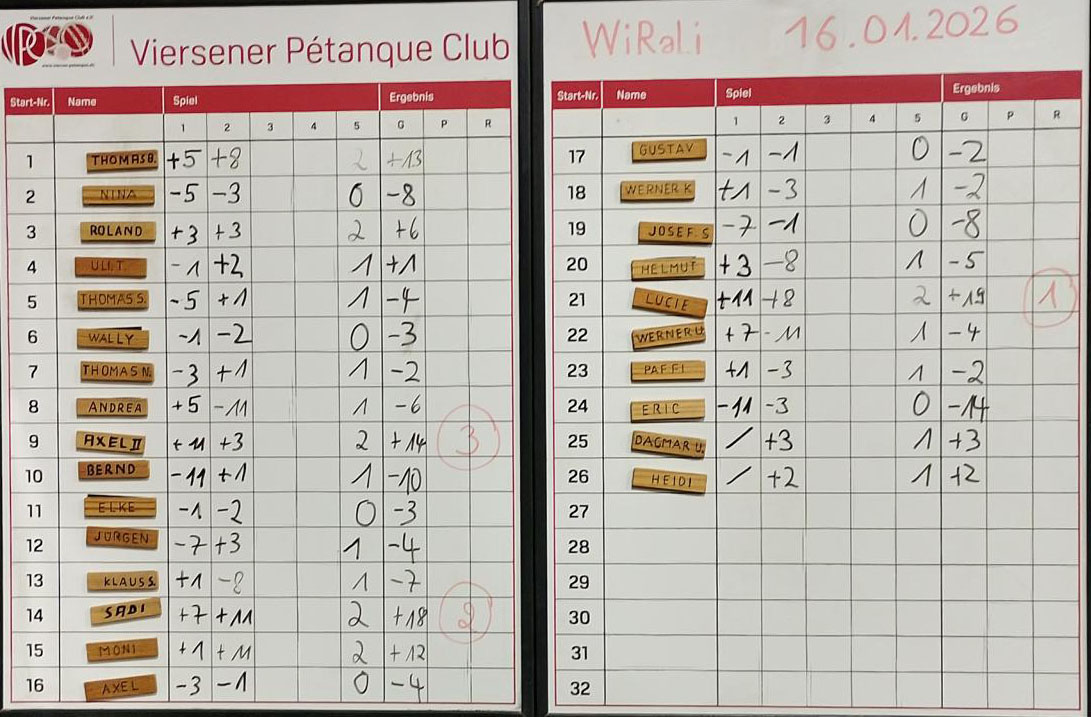 Viersener Pétanque Club e.V.
www.viersener-petanque.de
Viersener Pétanque Club
Start-Nr. Name Spiel Ergebnis
1 2 3 4 5 G P R
1 THOMAS B. +5 +8 2 +13
2 NINA -5 -3 0 -8
3 ROLAND +3 +3 2 +6
4 ULI.T. -1 +2 1 +1
5 THOMAS S. -5 +1 1 -4
6 WALLY -1 -2 0 -3
7 THOMAS N. -3 +1 1 -2
8 ANDREA +5 -11 1 -6
9 AXEL II +11 +3 2 +14 3
10 BERND -11 +1 1 -10
11 ELKE -1 -2 0 -3
12 JÜRGEN -7 +3 1 -4
13 KLAUS S. +1 -8 1 -7
14 SADI +7 +11 2 +18 2
15 MONI +1 +11 2 +12
16 AXEL -3 -1 0 -4
WiRali 16.01.2026
Start-Nr. Name Spiel Ergebnis
1 2 3 4 5 G P R
17 GUSTAV -1 -1 0 -2
18 WERNER K +1 -3 1 -2
19 JOSEF.S -7 -1 0 -8
20 HELMUT +3 -8 1 -5
21 LUCIE +11 +8 2 +19 1
22 WERNER U. +7 -11 1 -4
23 PAFFI +1 -3 1 -2
24 ERIC -11 -3 0 -14
25 DAGMAR U. / +3 1 +3
26 HEIDI / +2 1 +2
27
28
29
30
31
32